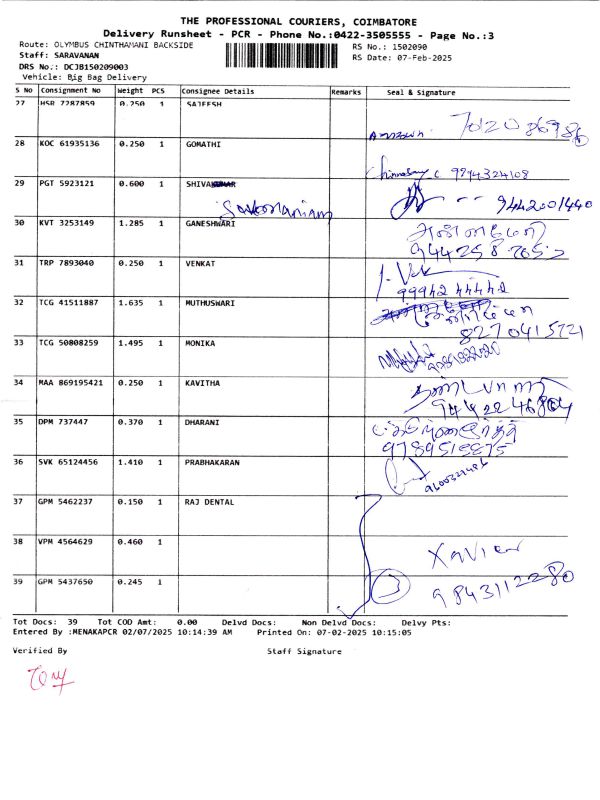 THE PROFESSIONAL COURIERS, COIMBATORE
Delivery Runsheet - PCR - Phone No.:0422-3505555 - Page No.:3
Route: OLYMBUS CHINTHAMANI BACKSIDE
RS No.: 1502090
Staff: SARAVANAN
RS Date: 07-Feb-2025
DRS No.: DCJB150209003
Vehicle: Big Bag Delivery
S No Consignment No Weight PCS Consignee Details Remarks Seal & Signature
27 HSR 7287859 0.250 1 SAJEESH
28 KOC 61935136 0.250 1 GOMATHI
Chinnasamy c 9994324108
29 PGT 5923121 0.600 1 SHIVAKUMAR
9442001440
30 KVT 3253149 1.285 1 GANESHWARI
31 TRP 7893040 0.250 1 VENKAT
99942 44442
32 TCG 41511887 1.635 1 MUTHUSWARI
33 TCG 50808259 1.495 1 MONIKA
34 MAA 869195421 0.250 1 KAVITHA
35 DPM 737447 0.370 1 DHARANI
36 SVK 65124456 1.410 1 PRABHAKARAN
37 GPM 5462237 0.150 1 RAJ DENTAL
38 VPM 4564629 0.460 1
Xavier
39 GPM 5437650 0.245 1
3
9843112280
Tot Docs: 39 Tot COD Amt: 0.00 Delvd Docs: Non Delvd Docs: Delvy Pts:
Entered By :MENAKAPCR 02/07/2025 10:14:39 AM Printed On: 07-02-2025 10:15:05
Verified By Staff Signature